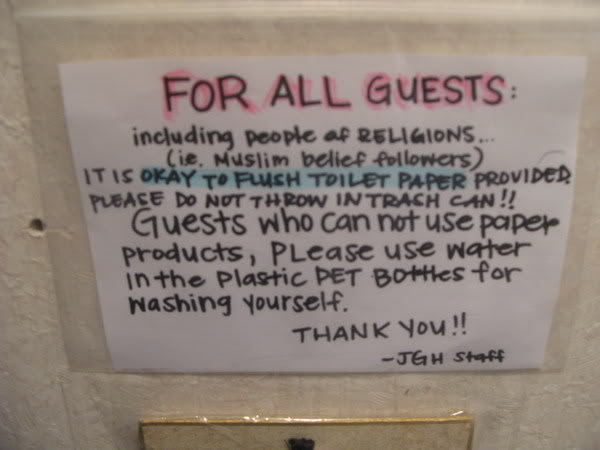 FOR ALL GUESTS:
including people of RELIGIONS...
(ie. Muslim belief followers)
IT IS OKAY TO FLUSH TOILET PAPER PROVIDED.
PLEASE DO NOT THROW IN TRASH CAN!!
Guests who can not use paper
products, Please use water
in the Plastic PET Bottles for
washing yourself.
THANK YOU!!
-JGH Staff